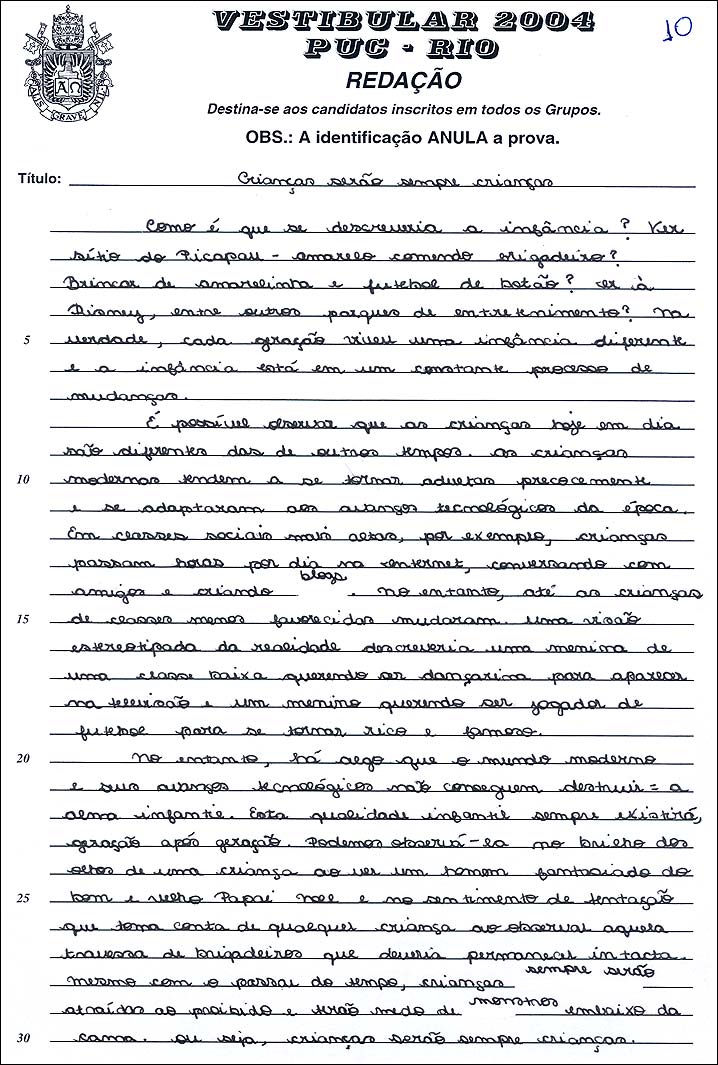 VESTIBULAR 2004
PUC - RIO
10
REDAÇÃO
Destina-se aos candidatos inscritos em todos os Grupos.
OBS.: A identificação ANULA a prova.
ALIS GRAVE NIL
Título: Crianças serão sempre crianças
Como é que se descreveria a infância? Ver
sítio do Picapau - amarelo comendo brigadeiro?
Brincar de amarelinha e futebol de botão? Ir à
Disney, entre outros parques de entretenimento? Na
5 verdade, cada geração viveu uma infância diferente
e a infância está em um constante processo de
mudanças.
É possível observar que as crianças hoje em dia
são diferentes das de outros tempos. As crianças
10 modernas tendem a se tornar adultas precocemente
e se adaptaram aos avanços tecnológicos da época.
Em classes sociais mais altas, por exemplo, crianças
passam horas por dia na internet, conversando com
amigos e criando blogs. No entanto, até as crianças
15 de classes menos favorecidas mudaram. Uma visão
estereotipada da realidade descreveria uma menina de
uma classe baixa querendo ser dançarina para aparecer
na televisão e um menino querendo ser jogador de
futebol para se tornar rico e famoso.
20 No entanto, há algo que o mundo moderno
e seus avanços tecnológicos não conseguem destruir = a
alma infantil. Esta qualidade infantil sempre existirá,
geração após geração. Podemos observá-la no brilho dos
olhos de uma criança ao ver um homem fantasiado do
25 bom e velho Papai Noel e no sentimento de tentação
que toma conta de qualquer criança ao observar aquela
travessa de brigadeiros que deveria permanecer intacta.
Mesmo com o passar do tempo, crianças sempre serão
atraídas ao proibido e terão medo de monstros embaixo da
30 cama. Ou seja, crianças serão sempre crianças.